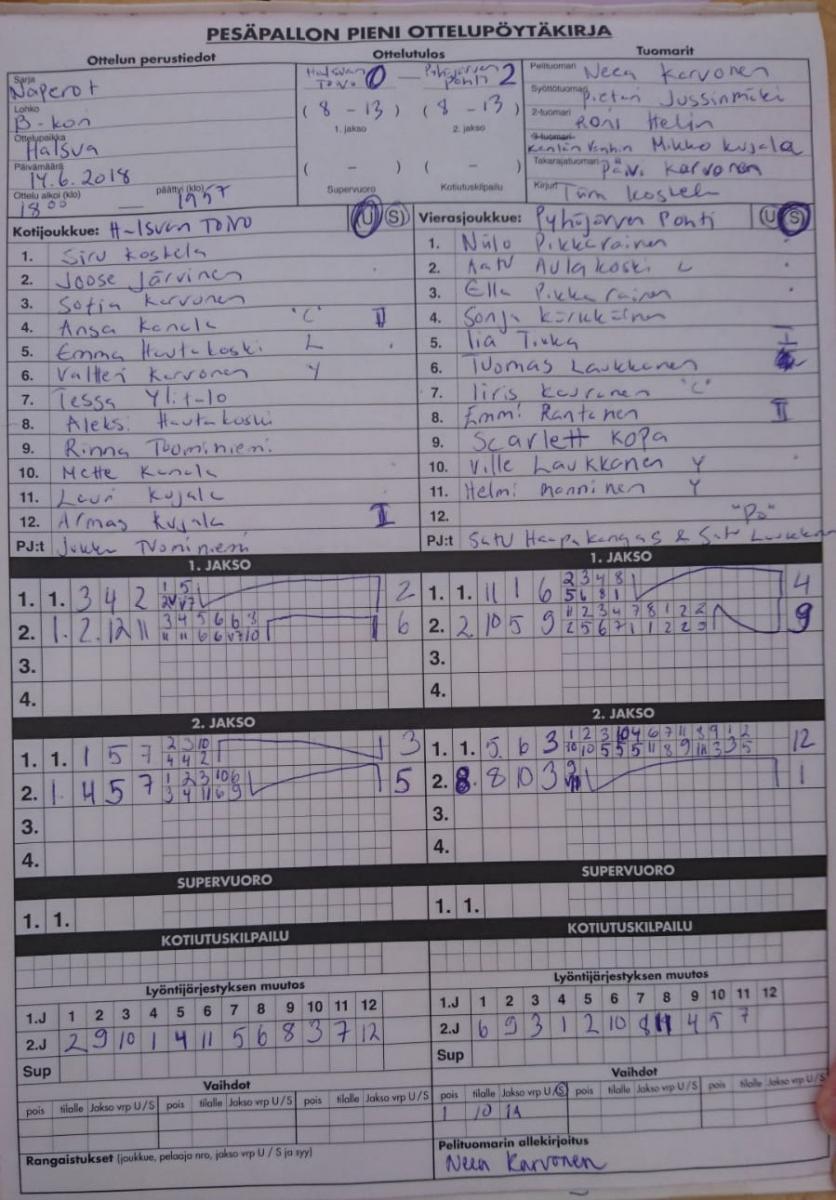 PESÄPALLON PIENI OTTELUPÖYTÄKIRJA
Ottelun perustiedot
Sarja
Naperot
Lohko
B-kon
Ottelupaikka
Halsua
Päivämäärä
14.6.2018
Ottelu alkoi (klo) päättyi (klo)
18 00 — 1957
Ottelutulos
Halsuan Toivo 0 — Pyhäjärven Pohti 2
( 8 - 13 ) ( 8 - 13 )
1. jakso 2. jakso
( - ) ( - )
Supervuoro Kotiutuskilpailu
Tuomarit
Pelituomari Neea Karvonen
Syöttötuomari Pietari Jussinmäki
2-tuomari Roni Helin
3-tuomari Kentän vanhin Mikko Kujala
Takarajatuomari Päivi Karvonen
Kirjuri Tiina Koskela
Kotijoukkue: Halsuan Toivo U S
1. Siru Koskela
2. Joose Järvinen
3. Sofia Karvonen
4. Ansa Kanala "C" II
5. Emma Hautakoski L
6. Valtteri Karvonen Y
7. Tessa Ylitalo
8. Aleksi Hautakoski
9. Rinna Tuominiemi
10. Mette Kanala
11. Lauri Kujala
12. Armas Kujala I
PJ:t Jukka Tuominiemi
Vierasjoukkue: Pyhäjärven Pohti U S
1. Niilo Pikkarainen
2. Aatu Aulakoski L
3. Ella Pikkarainen
4. Sonja Kärkkäinen
5. Iia Tiska I
6. Tuomas Laukkanen
7. Iiris Kauranen "C"
8. Emmi Rantanen II
9. Scarlett Kopa
10. Ville Laukkanen Y
11. Helmi Manninen Y
12. "Po"
PJ:t Satu Haapakangas & Satu Laukkanen
1. JAKSO
1. 1. 3 4 2 1 5 2
2V V7
2. 1. 2. 12 11 3 4 5 6 6 8 6
11 11 6 6 V7 10
3.
4.
1. JAKSO
1. 1. 11 1 6 2 3 4 8 4
5 6 8 1
2. 2. 10 5 9 11 2 3 4 7 8 1 2 2 9
2 5 6 7 1 1 2 2 3
3.
4.
2. JAKSO
1. 1. 1 5 7 2 3 10 3
4 4 2
2. 1. 4 5 7 1 2 3 10 6 5
3 4 11 6 9
3.
4.
2. JAKSO
1. 1. 5. 6 3 1 2 3 10 4 6 7 11 8 9 1 2 12
10 10 5 5 5 11 8 9 11 3 3 5
2. 8. 8 10 3 1
3.
4.
SUPERVUORO
1. 1.
SUPERVUORO
1. 1.
KOTIUTUSKILPAILU
KOTIUTUSKILPAILU
Lyöntijärjestyksen muutos
1.J 1 2 3 4 5 6 7 8 9 10 11 12
2.J 2 9 10 1 4 11 5 6 8 3 7 12
Sup
Lyöntijärjestyksen muutos
1.J 1 2 3 4 5 6 7 8 9 10 11 12
2.J 6 9 3 1 2 10 8 11 4 5 7
Sup
Vaihdot
pois tilalle Jakso vrp U / S pois tilalle Jakso vrp U / S pois tilalle Jakso vrp U / S
Vaihdot
pois tilalle Jakso vrp U / S pois tilalle Jakso vrp U / S pois tilalle Jakso vrp U / S
1 10 1A
Rangaistukset (joukkue, pelaaja nro, jakso vrp U / S ja syy)
Pelituomarin allekirjoitus
Neea Karvonen